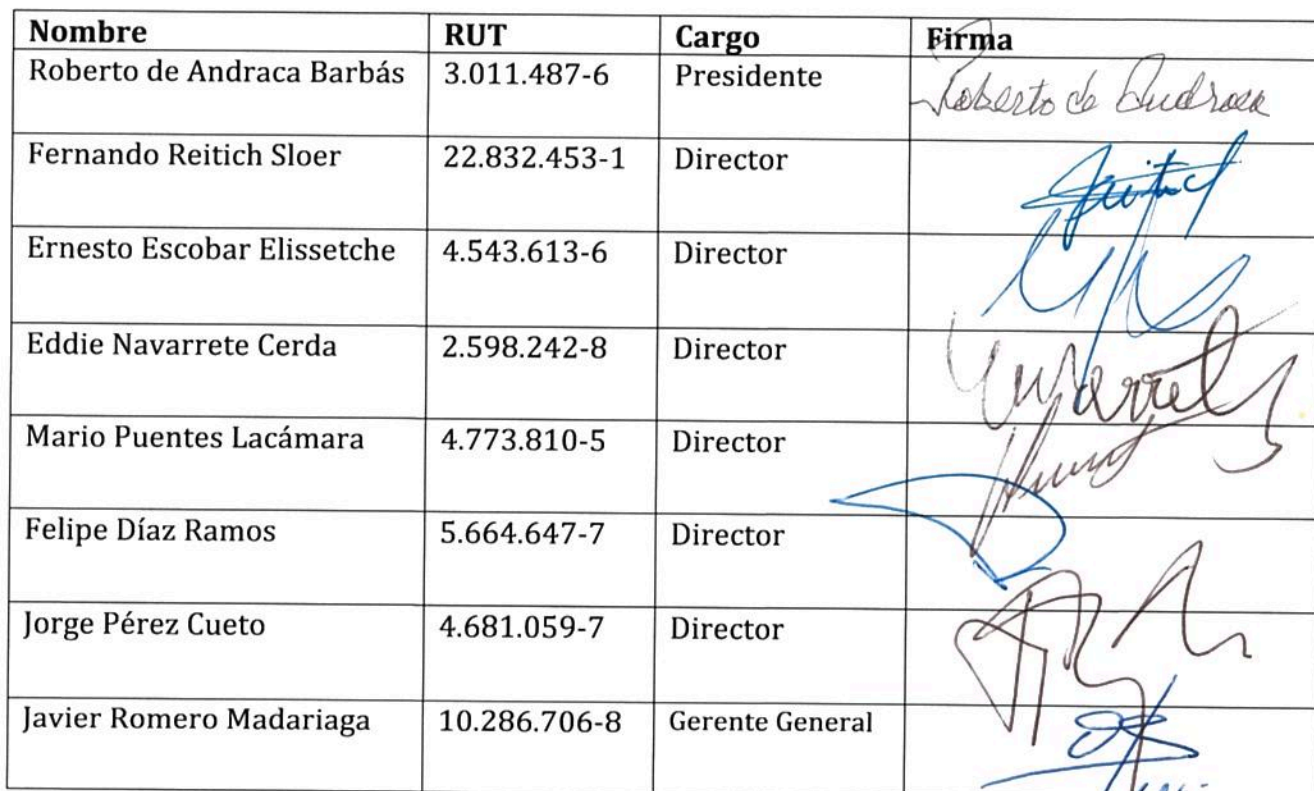 Nombre RUT Cargo Firma
Roberto de Andraca Barbás 3.011.487-6 Presidente Roberto de Andraca
Fernando Reitich Sloer 22.832.453-1 Director
Ernesto Escobar Elissetche 4.543.613-6 Director
Eddie Navarrete Cerda 2.598.242-8 Director
Mario Puentes Lacámara 4.773.810-5 Director
Felipe Díaz Ramos 5.664.647-7 Director
Jorge Pérez Cueto 4.681.059-7 Director
Javier Romero Madariaga 10.286.706-8 Gerente General